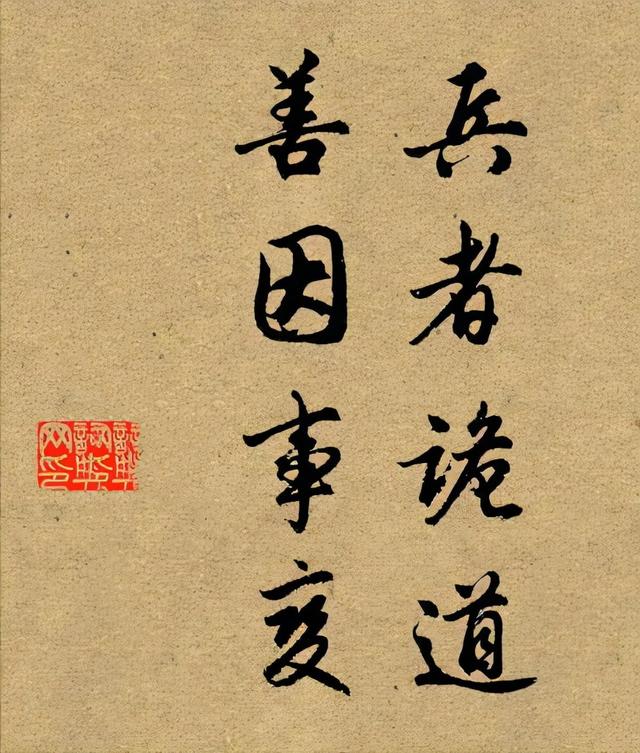 兵者诡道
善因事变